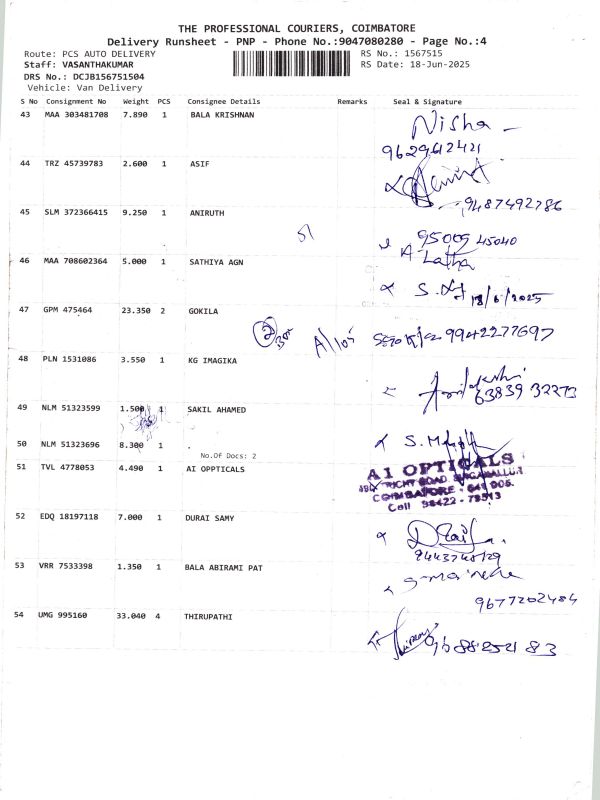 THE PROFESSIONAL COURIERS, COIMBATORE
Delivery Runsheet - PNP - Phone No.:9047080280 - Page No.:4
Route: PCS AUTO DELIVERY RS No.: 1567515
Staff: VASANTHAKUMAR RS Date: 18-Jun-2025
DRS No.: DCJB156751504
Vehicle: Van Delivery
S No Consignment No Weight PCS Consignee Details Remarks Seal & Signature
43 MAA 303481708 7.890 1 BALA KRISHNAN Nisha
9629612421
44 TRZ 45739783 2.600 1 ASIF
9487492786
45 SLM 372366415 9.250 1 ANIRUTH
95009 45040
A. Latha
46 MAA 708602364 5.000 1 SATHIYA AGN
18/6/2025
47 GPM 475464 23.350 2 GOKILA
9942277697
48 PLN 1531086 3.550 1 KG IMAGIKA
63839 32273
49 NLM 51323599 1.500 1 SAKIL AHAMED
50 NLM 51323696 8.300 1
No.Of Docs: 2
51 TVL 4778053 4.490 1 AI OPPTICALS
A1 OPTICALS
TRICHY ROAD, SINGANALLUR
COIMBATORE - 641 005.
Cell 98422 - 79513
52 EDQ 18197118 7.000 1 DURAI SAMY
53 VRR 7533398 1.350 1 BALA ABIRAMI PAT
9677202484
54 UMG 995160 33.040 4 THIRUPATHI